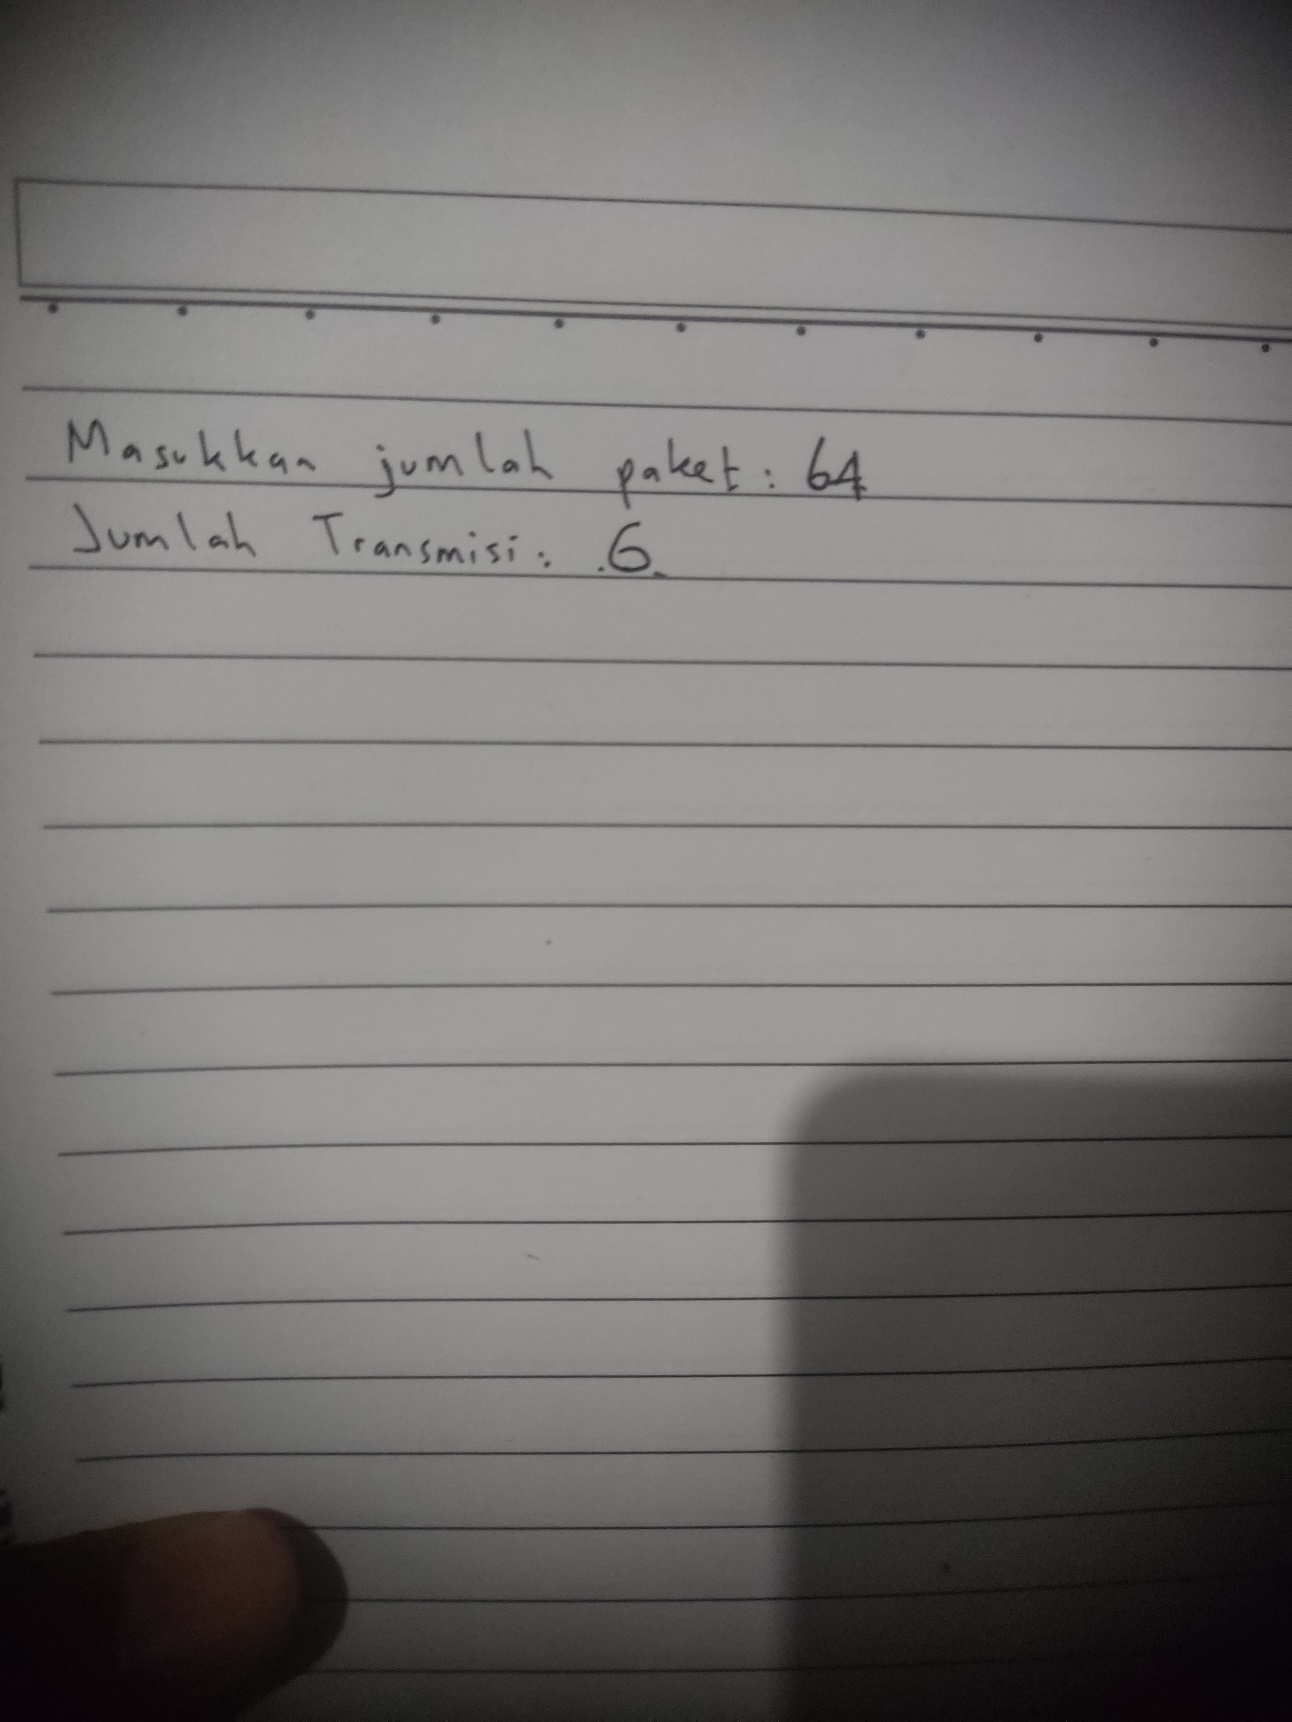 Masukkan jumlah paket : 64
Jumlah Transmisi : .6.